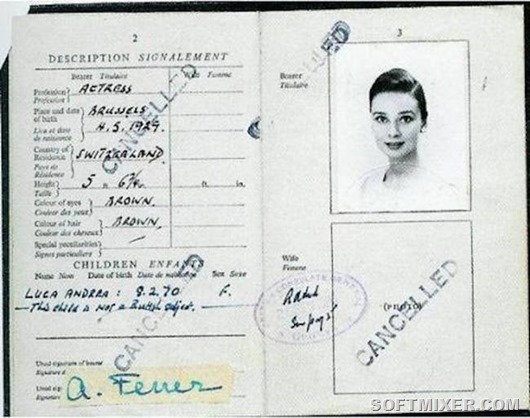 2
DESCRIPTION SIGNALEMENT
Bearer Titulaire Wife Femme
Profession
Profession
ACTRESS
Place and date
of birth
Lieu et date
de naissance
BRUSSELS
4.5.1929.
Country of
Residence
Pays de
Résidence
SWITZERLAND.
Height
Taille
5 ft. in.
Colour of eyes
Couleur des yeux
BROWN.
Colour of hair
Couleur des cheveux
BROWN.
Special peculiarities
Signes particuliers
CANCELLED
CHILDREN ENFANTS
Name Nom Date of birth Date de naissance Sex Sexe
LUCA ANDREA: 8.2.70 F.
This child is not a British subject.
CANCELLED
Usual signature of bearer
Signature
Usual
Signature
3
CANCELLED
Bearer
Titulaire
Wife
Femme
(PHOTO)
CANCELLED
SOFTMIXER.COM